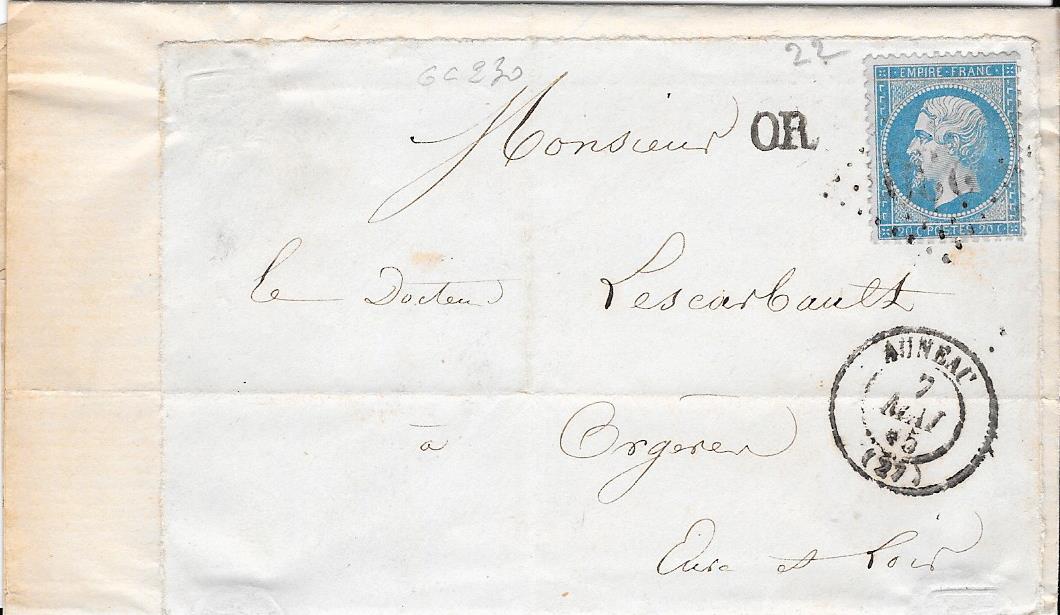 GC 230
22
EMPIRE · FRANC
Monsieur OR
20 C POSTES 20 C
le Docteur Lescarbault
AUNEAU
7
MAI
65
(27)
à Orgères
Eure et Loir